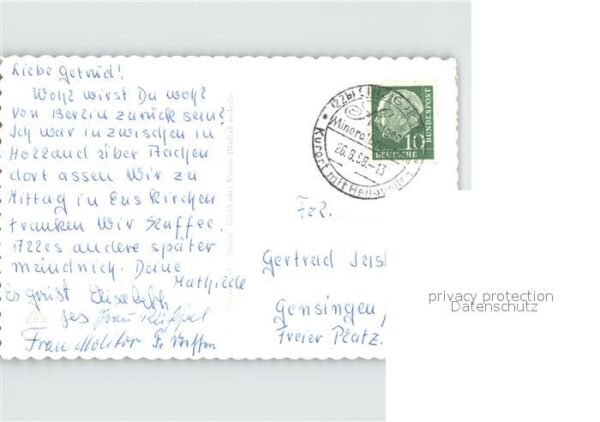 Liebe Getrud!
Wohl wirst Du wohl
von Berlin zurück sein?
Ich war inzwischen in
Holland über Aachen
dort assen Wir zu
Mittag in Euskirchen
tranken Wir Kaffee.
Alles andere später
mündnich. Deine
Mathilde
Es grüst Elisabeth
Frau Küppel
Frau Molitor
(22b) SINZIG
Mineralbad
26.8.56.-13
Kurort mit Heilquellen
10
DEUTSCHE
BUNDESPOST
Frl.
Gertrud
Gensingen
Freier Platz.
privacy protection
Datenschutz